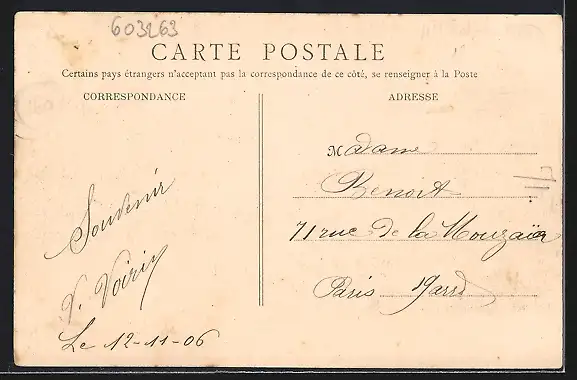 603263
CARTE POSTALE
Certains pays étrangers n'acceptant pas la correspondance de ce côté, se renseigner à la Poste
CORRESPONDANCE
ADRESSE
Madame
Benoit
71 rue de la Mouzaïa
Paris 19arrd
Souvenir
V. Voirin
Le 12-11-06